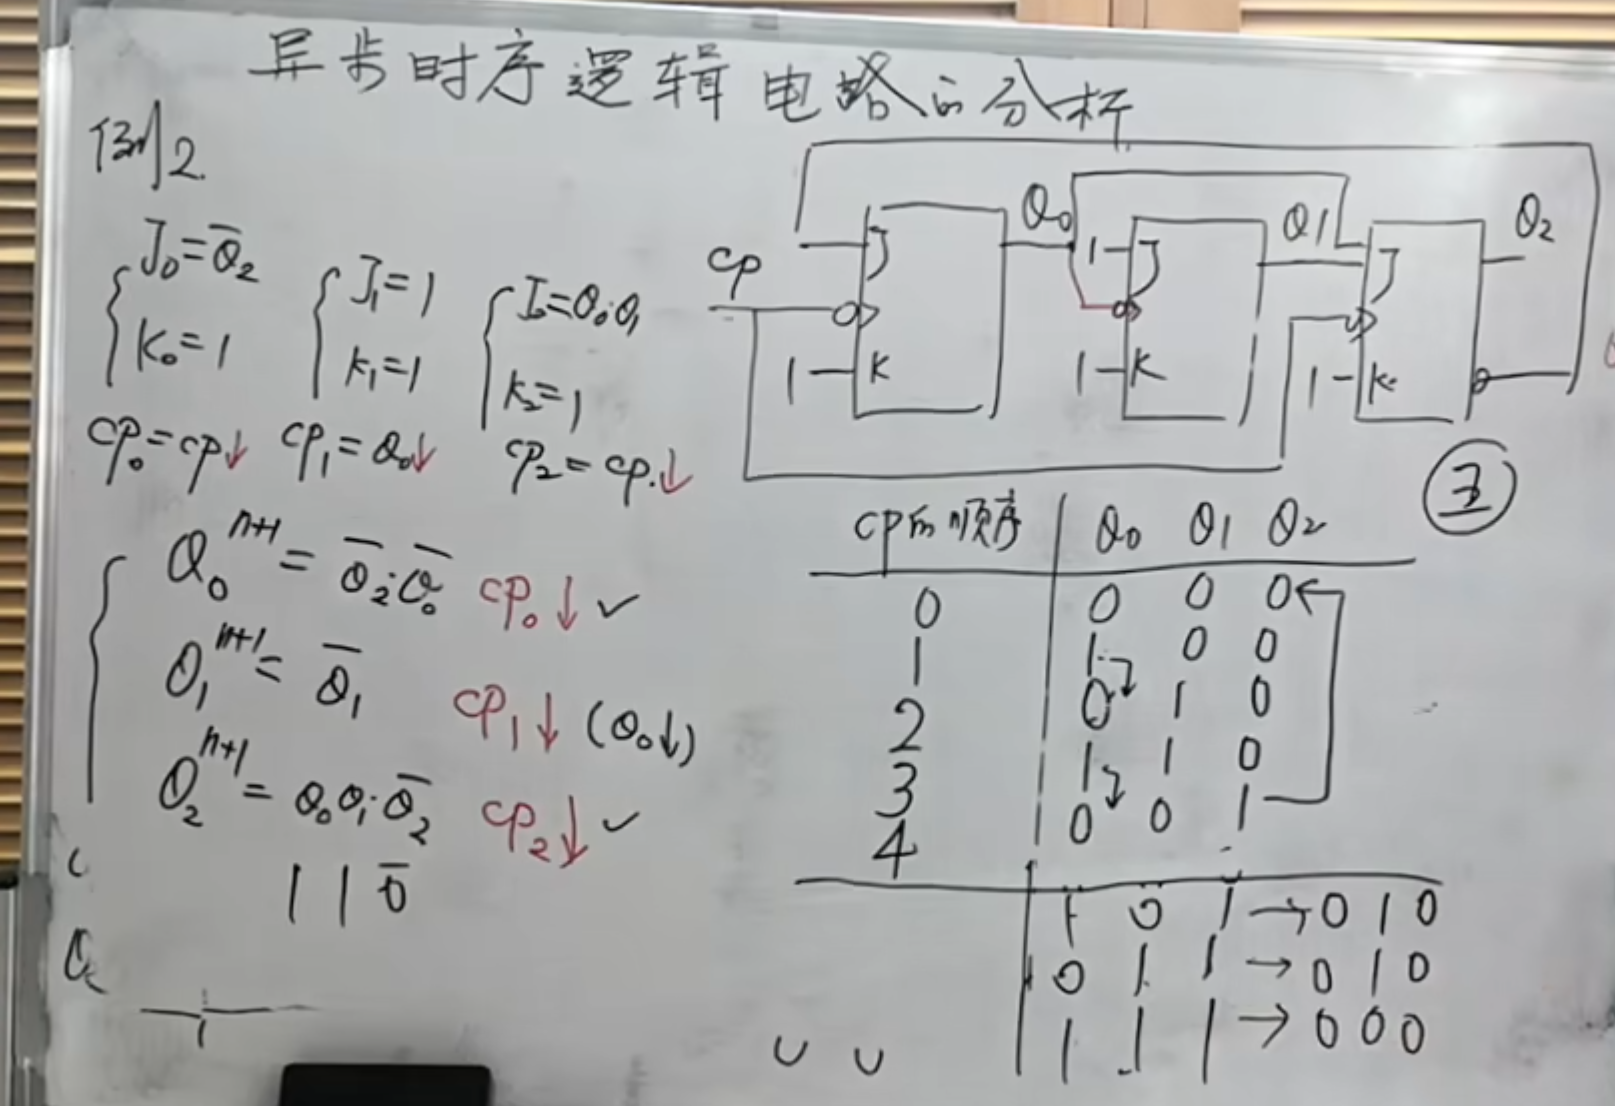 异步时序逻辑电路的分析
例2.
J₀=Q̅₂
K₀=1
J₁=1
K₁=1
J₀=Q₀·Q₁
K₂=1
CP₀=CP↓ CP₁=Q₀↓ CP₂=CP.↓
Q₀ⁿ⁺¹ = Q̅₂·Q̅₀ CP₀↓ ✓
Q₁ⁿ⁺¹ = Q̅₁ CP₁↓ (Q₀↓)
Q₂ⁿ⁺¹ = Q₀Q₁·Q̅₂ CP₂↓ ✓
1 1 0̅
CP
J
K
1
Q₀
1
J
1
K
Q1
J
1
K
Q₂
王
CP的顺序 Q₀ Q1 Q₂
0 0 0 0
1 1 0 0
2 0 1 0
3 1 1 0
4 0 0 1
1 0 1 → 0 1 0
0 1 1 → 0 1 0
1 1 1 → 0 0 0